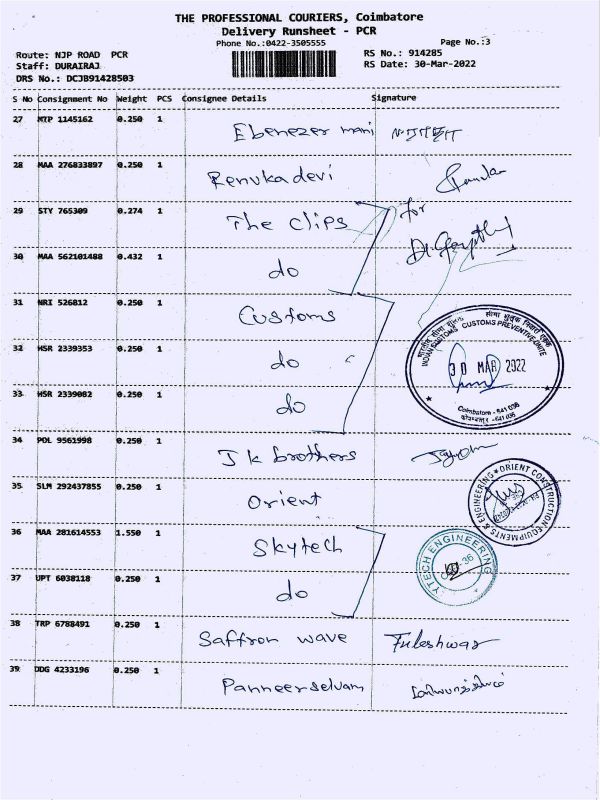 THE PROFESSIONAL COURIERS, Coimbatore
Delivery Runsheet - PCR
Phone No.:0422-3505555
Page No.:3
Route: NJP ROAD PCR
RS No.: 914285
Staff: DURAIRAJ
RS Date: 30-Mar-2022
DRS No.: DCJB91428503
S No Consignment No Weight PCS Consignee Details Signature
27 MTP 1145162 0.250 1 Ebenezer mani
28 MAA 276833897 0.250 1 Renuka devi
29 STY 765309 0.274 1 The Clips for
30 MAA 562101488 0.432 1 do
31 NRI 526812 0.250 1 Customs
32 HSR 2339353 0.250 1 do
33 HSR 2339082 0.250 1 do
INDIAN CUSTOMS CUSTOMS PREVENTIVE UNIT
30 MAR 2022
Coimbatore - 641 018
34 POL 9561998 0.250 1 J k brothers
35 SLM 292437855 0.250 1 Orient
ORIENT CONSTRUCTION EQUIPMENTS & ENGINEERING
36 MAA 281614553 1.550 1 Skytech
YTECH ENGINEERING
37 UPT 6038118 0.250 1 do
38 TRP 6788491 0.250 1 Saffron wave Fuleshwar
39 DDG 4233196 0.250 1 Panneerselvam